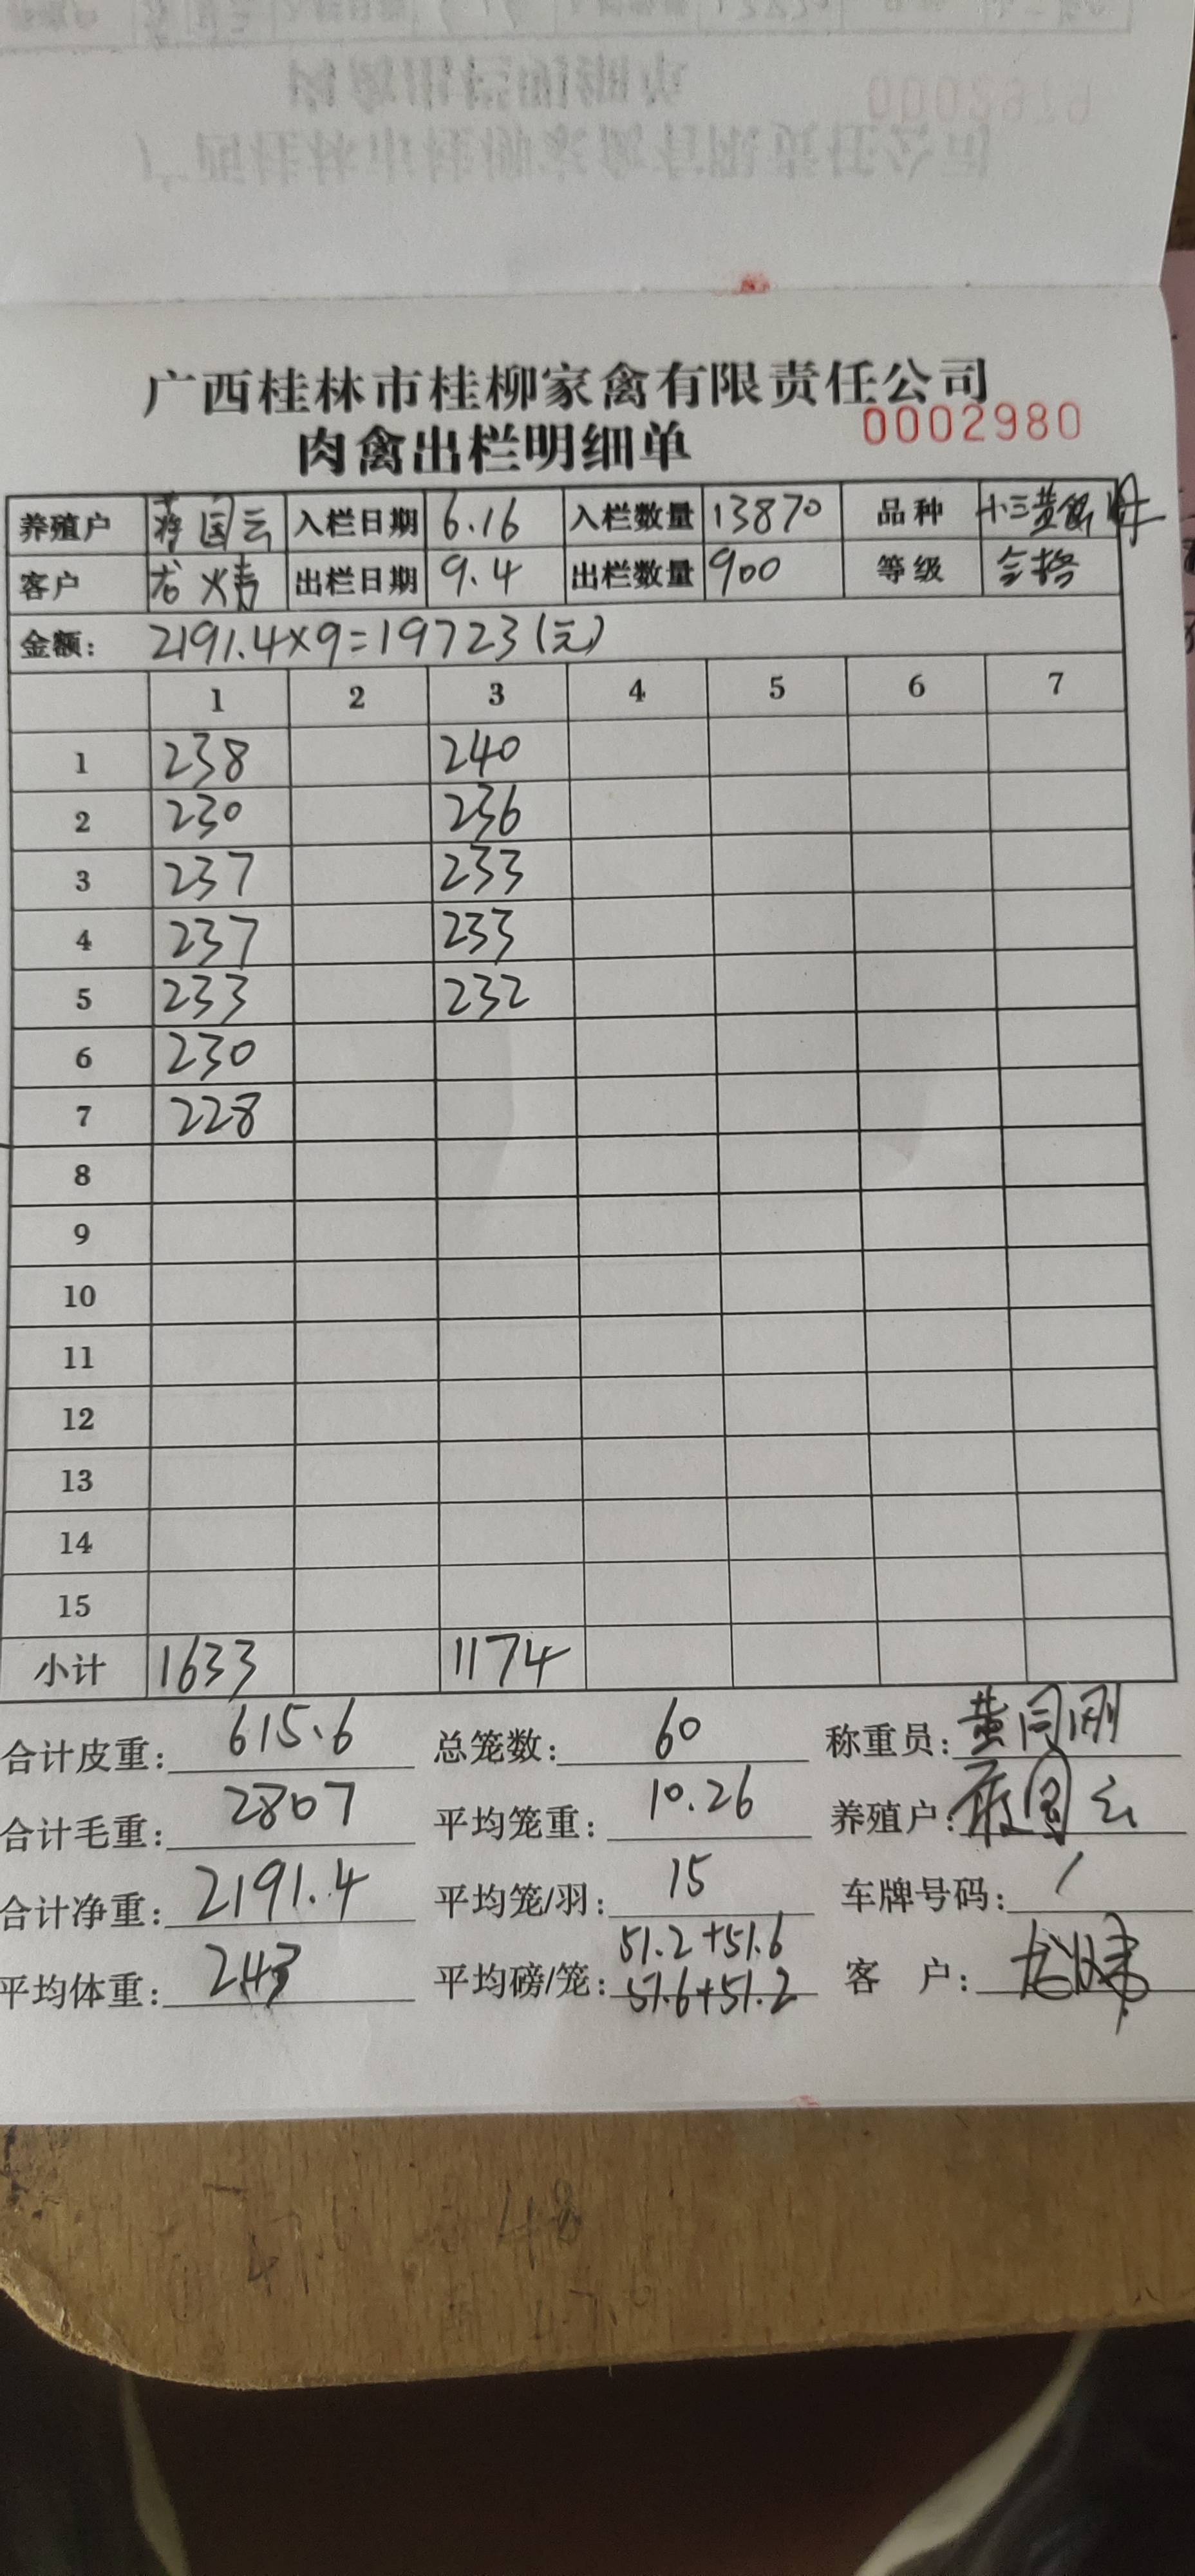 广西桂林市桂柳家禽有限责任公司
肉禽出栏明细单 0002980
养殖户 蒋国云 入栏日期 6.16 入栏数量 13870 品种 小三黄
客户 龙 出栏日期 9.4 出栏数量 900 等级 合格
金额: 2191.4×9=19723(元)
1 2 3 4 5 6 7
1 238 240
2 230 236
3 237 233
4 237 233
5 233 232
6 230
7 228
8
9
10
11
12
13
14
15
小计 1633 1174
合计皮重: 615.6 总笼数: 60 称重员: 黄同刚
合计毛重: 2807 平均笼重: 10.26 养殖户: 国云
合计净重: 2191.4 平均笼/羽: 15 车牌号码: /
51.2+51.6
平均体重: 243 平均磅/笼: 51.6+51.2 客 户: 龙